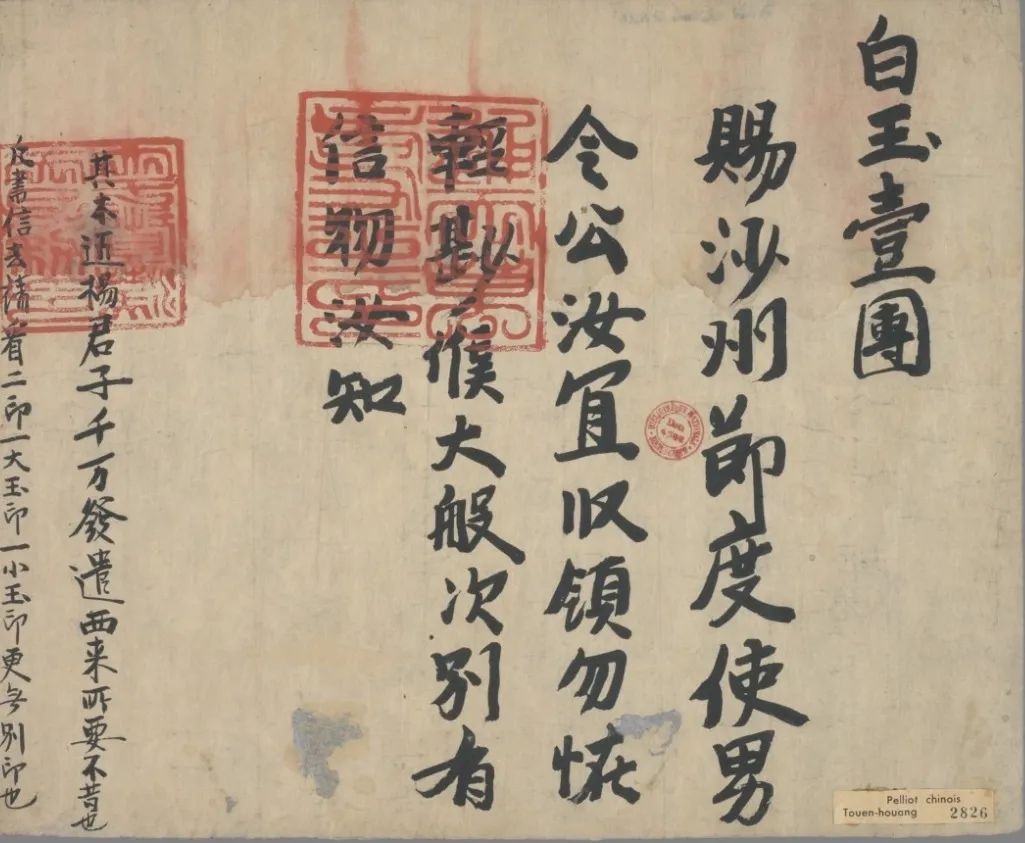 白玉壹團
賜沙州節度使男
令公汝宜収領勿恠
輕尠候大般次別有
信物汝知
其木匠楊君子千万發遣西来所要不昔也
凡書信去請看二印一大玉印一小玉印更無別印也
Pelliot chinois
Touen-houang 2826